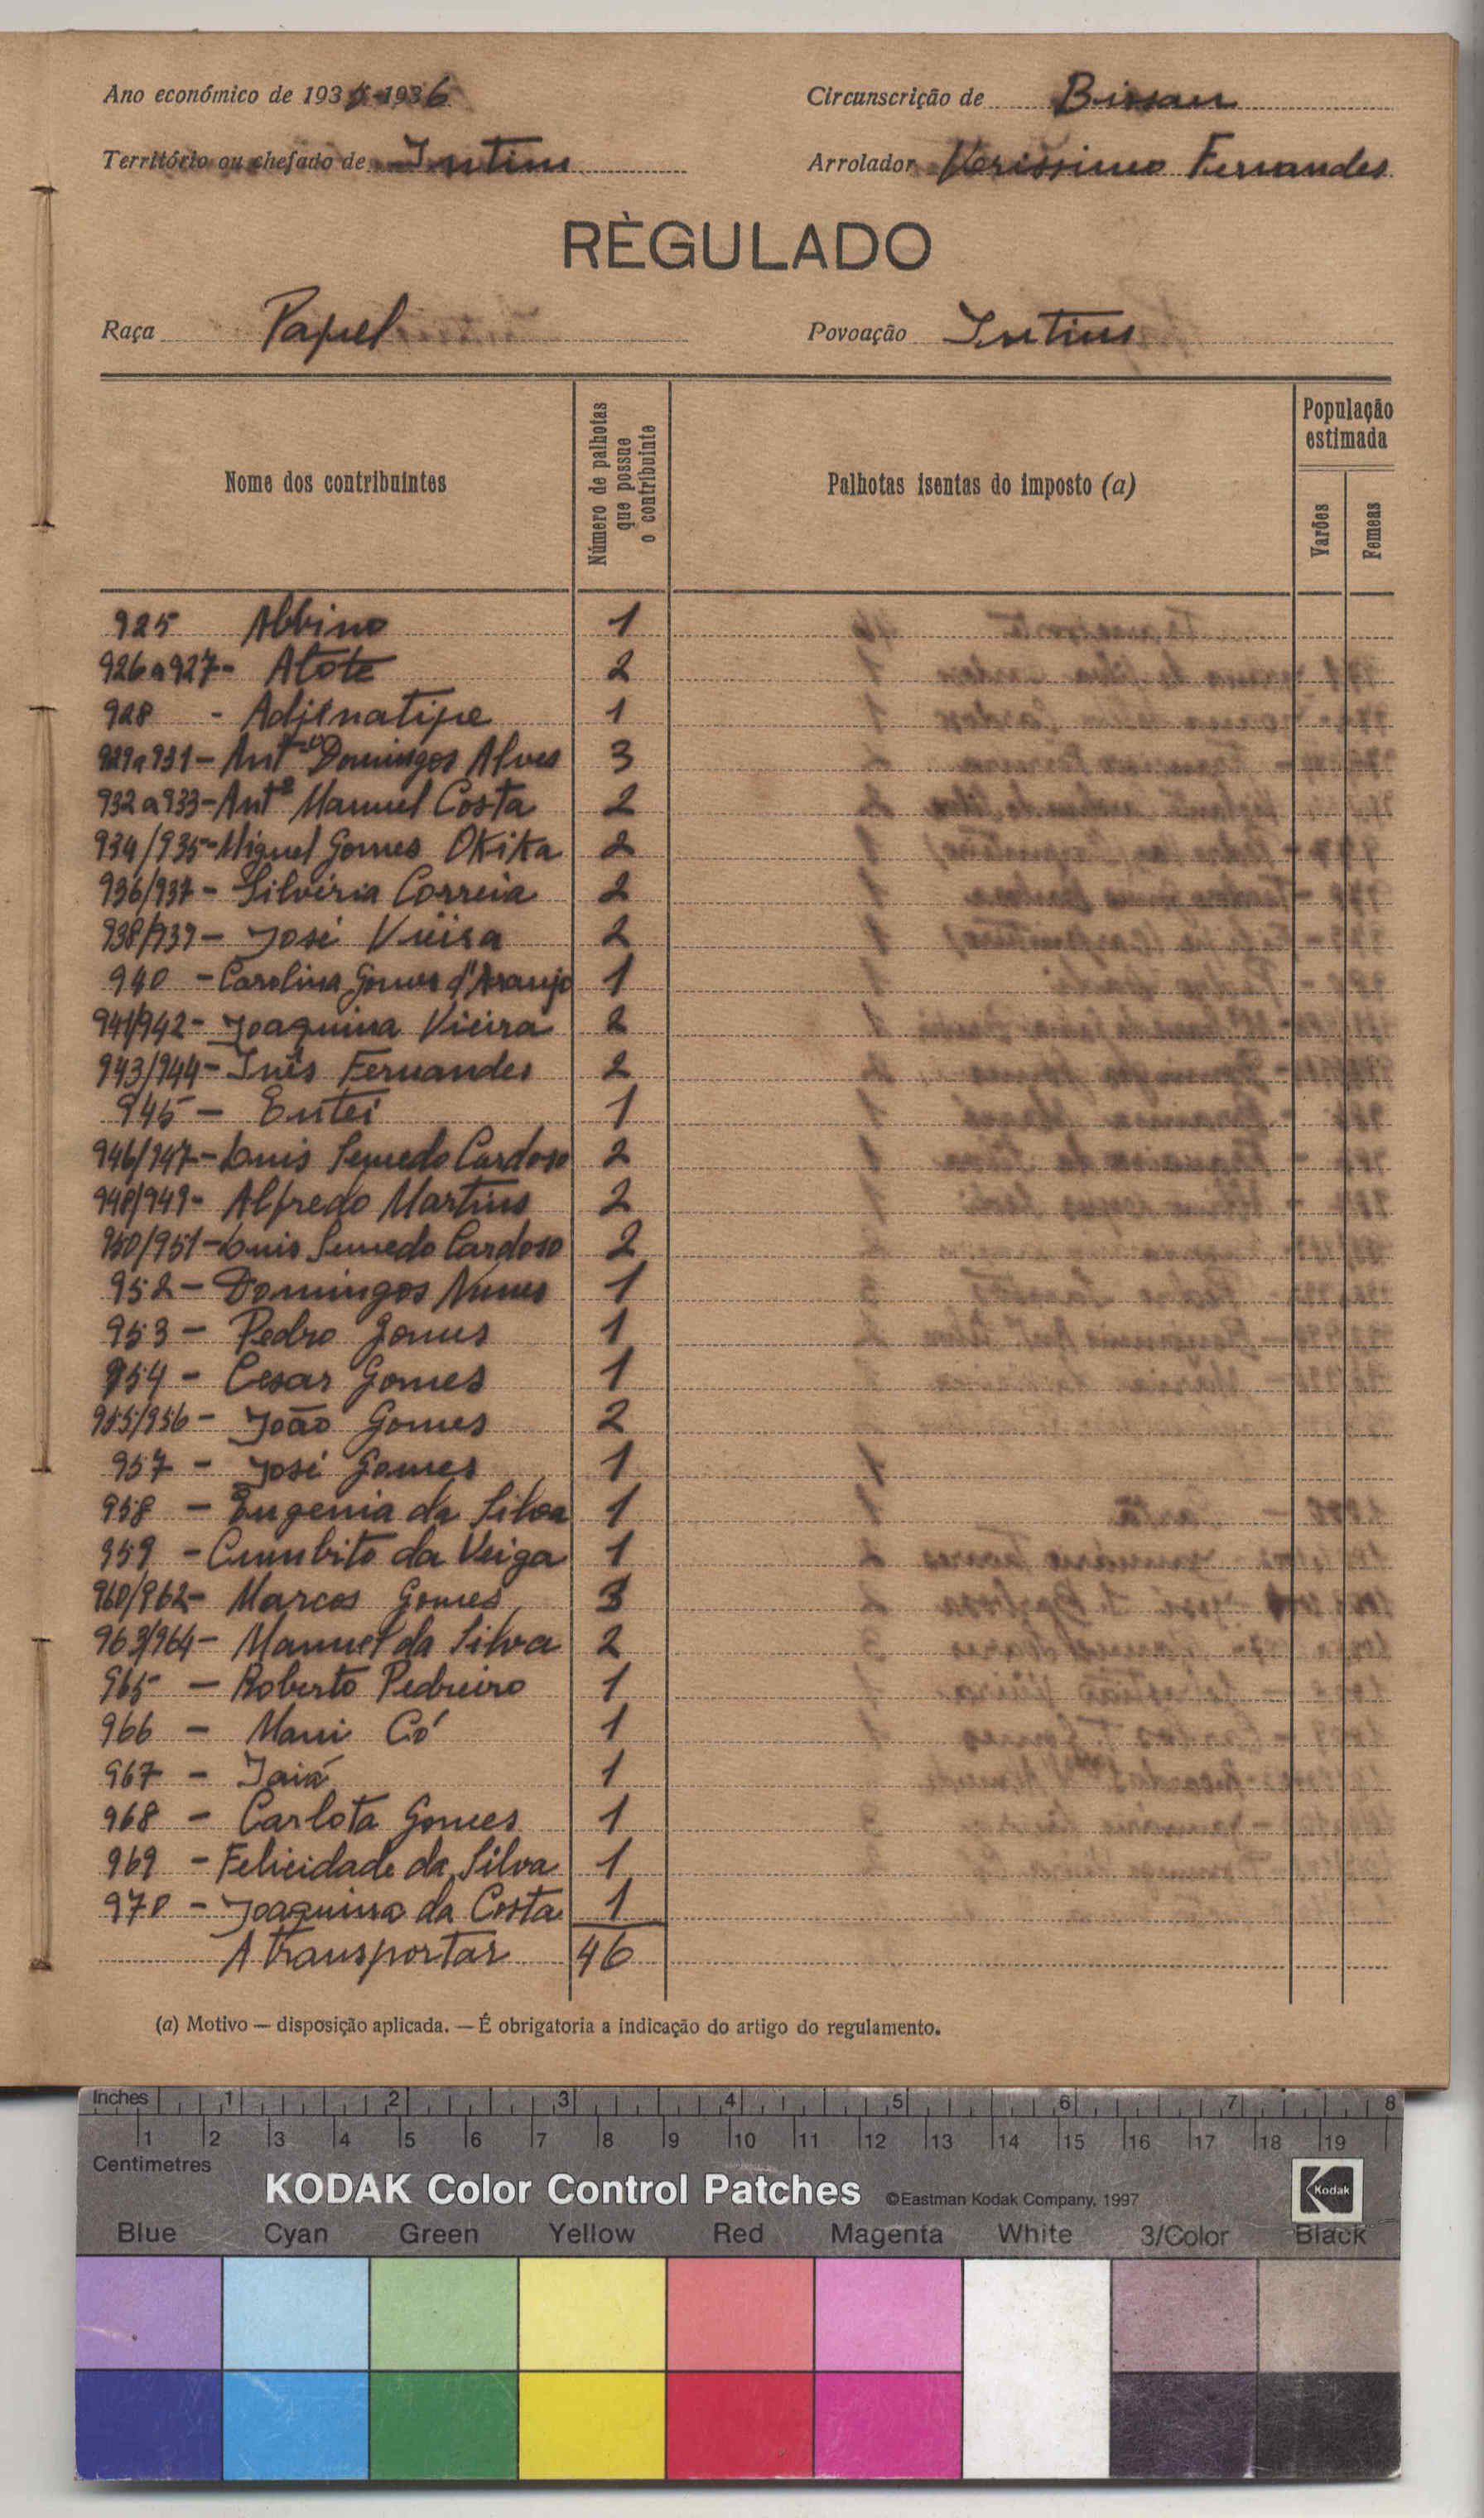 Ano económico de 1935-1936
Circunscrição de Bissau
Território ou chefado de Intim
Arrolador Verissimo Fernandes
RÈGULADO
Raça Papel
Povoação Intim
Nome dos contribuintes
Número de palhotas que possue o contribuinte
Palhotas isentas do imposto (a)
População estimada
Varões
Femeas
925 Albino 1
926 a 927 - Atote 2
928 - Adjenatipe 1
929 a 931 - Antº Domingos Alves 3
932 a 933 - Antº Manuel Costa 2
934/935 - Miguel Gomes Okika 2
936/937 - Silvéria Correia 2
938/939 - José Vieira 2
940 - Carolina Gomes d'Araujo 1
941/942 - Joaquina Vieira 2
943/944 - Inês Fernandes 2
945 - Entei 1
946/947 - Luis Semedo Cardoso 2
948/949 - Alfredo Martins 2
950/951 - Luis Semedo Cardoso 2
952 - Domingos Nunes 1
953 - Pedro Gomes 1
954 - Cesar Gomes 1
955/956 - João Gomes 2
957 - José Gomes 1
958 - Eugenia da Silva 1
959 - Cumbito da Veiga 1
960/962 - Marcos Gomes 3
963/964 - Manuel da Silva 2
965 - Roberto Pedreiro 1
966 - Maui Có 1
967 - Iaiá 1
968 - Carlota Gomes 1
969 - Felicidade da Silva 1
970 - Joaquina da Costa 1
A transportar 46
(a) Motivo — disposição aplicada. — É obrigatoria a indicação do artigo do regulamento.
Inches 1 2 3 4 5 6 7 8
1 2 3 4 5 6 7 8 9 10 11 12 13 14 15 16 17 18 19
Centimetres
KODAK Color Control Patches ©Eastman Kodak Company, 1997 Kodak
Blue Cyan Green Yellow Red Magenta White 3/Color Black